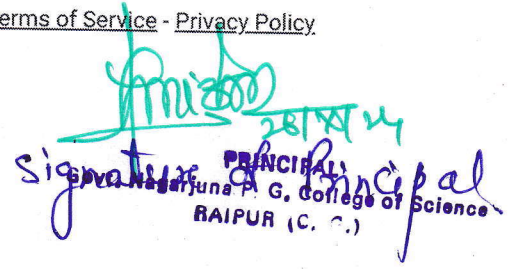 erms of Service - Privacy Policy
Signature of Principal
PRINCIPAL
Govt. Nagarjuna P. G. College of Science
RAIPUR (C. G.)